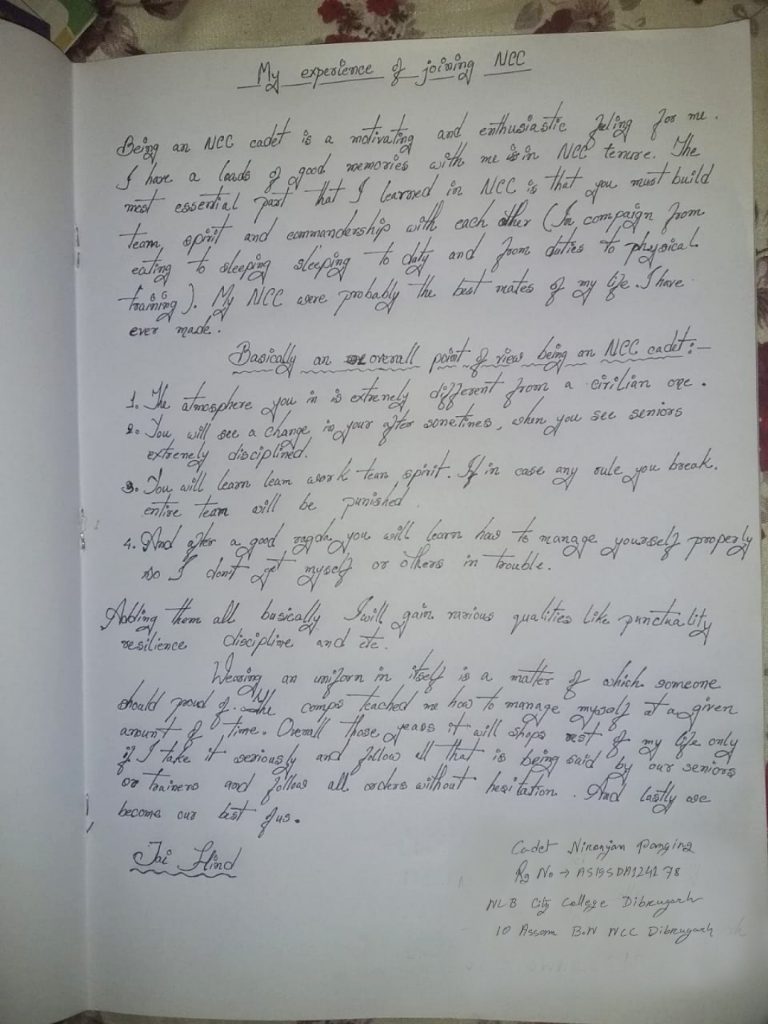 My experience of joining NCC
Being an NCC cadet is a motivating and enthusiastic feling for me.
I have a loads of good memories with me is in NCC tenure. The
most essential part that I learned in NCC is that you must build
team, spirit and commandership with each other (In compaign from
eating to sleeping sleeping to duty and from duties to physical
training). My NCC were probably the best mates of my life I have
ever made.
Basically an overall point of view being an NCC cadet:-
1. The atmosphere you in is extremely different from a civilian one.
2. You will see a change in your after sometimes, when you see seniors
extremely disciplined.
3. You will learn team work team spirit. If in case any rule you break.
entire team will be punished.
4. And after a good ragda, you will learn how to manage yourself properly
so I dont get myself or others in trouble.
Adding them all basically I will gain various qualities like punctuality
resilience discipline and etc.
Wearing an uniform in itself is a matter of which someone
should proud of. The camps teached me how to manage myself at a given
amount of time. Overall those years it will shape rest of my life only
if I take it seriously and follow all that is being said by our seniors
or trainers and follow all orders without hesitation. And lastly we
become our best of us.
Jai Hind
Cadet Niranjan Panging
Rg No →
NLB City College Dibrugarh
10 Assam B.N NCC Dibrugarh